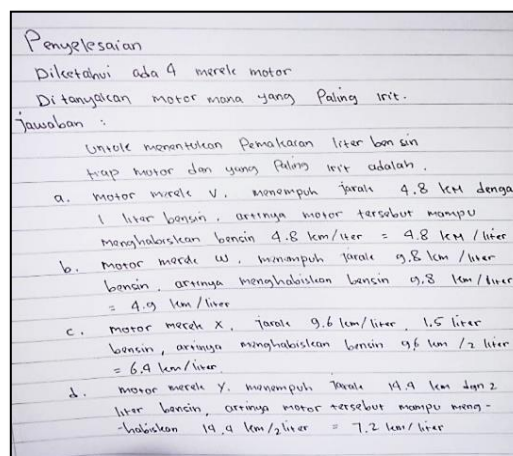 Penyelesaian
Diketahui ada 4 merek motor
Ditanyakan motor mana yang Paling irit.
jawaban :
Untuk menentukan Pemakaian liter bensin
tiap motor dan yang Paling irit adalah.
a. motor merek V. menempuh jarak 4.8 KM denga
1 liter bensin, artinya motor tersebut mampu
menghabiskan bensin 4.8 km/liter = 4.8 KM/liter
b. motor merek W. menempuh jarak 9.8 km/liter
bensin, artinya menghabiskan bensin 9.8 km/liter
= 4.9 km/liter
c. motor merek X. jarak 9.6 km/liter, 1.5 liter
bensin, artinya menghabiskan bensin 9.6 km/2 liter
= 6.4 km/liter.
d. motor merek Y. menempuh jarak 14.4 km dgn 2
liter bensin, artinya motor tersebut mampu meng-
-habiskan 14.4 km/2 liter = 7.2 km/liter